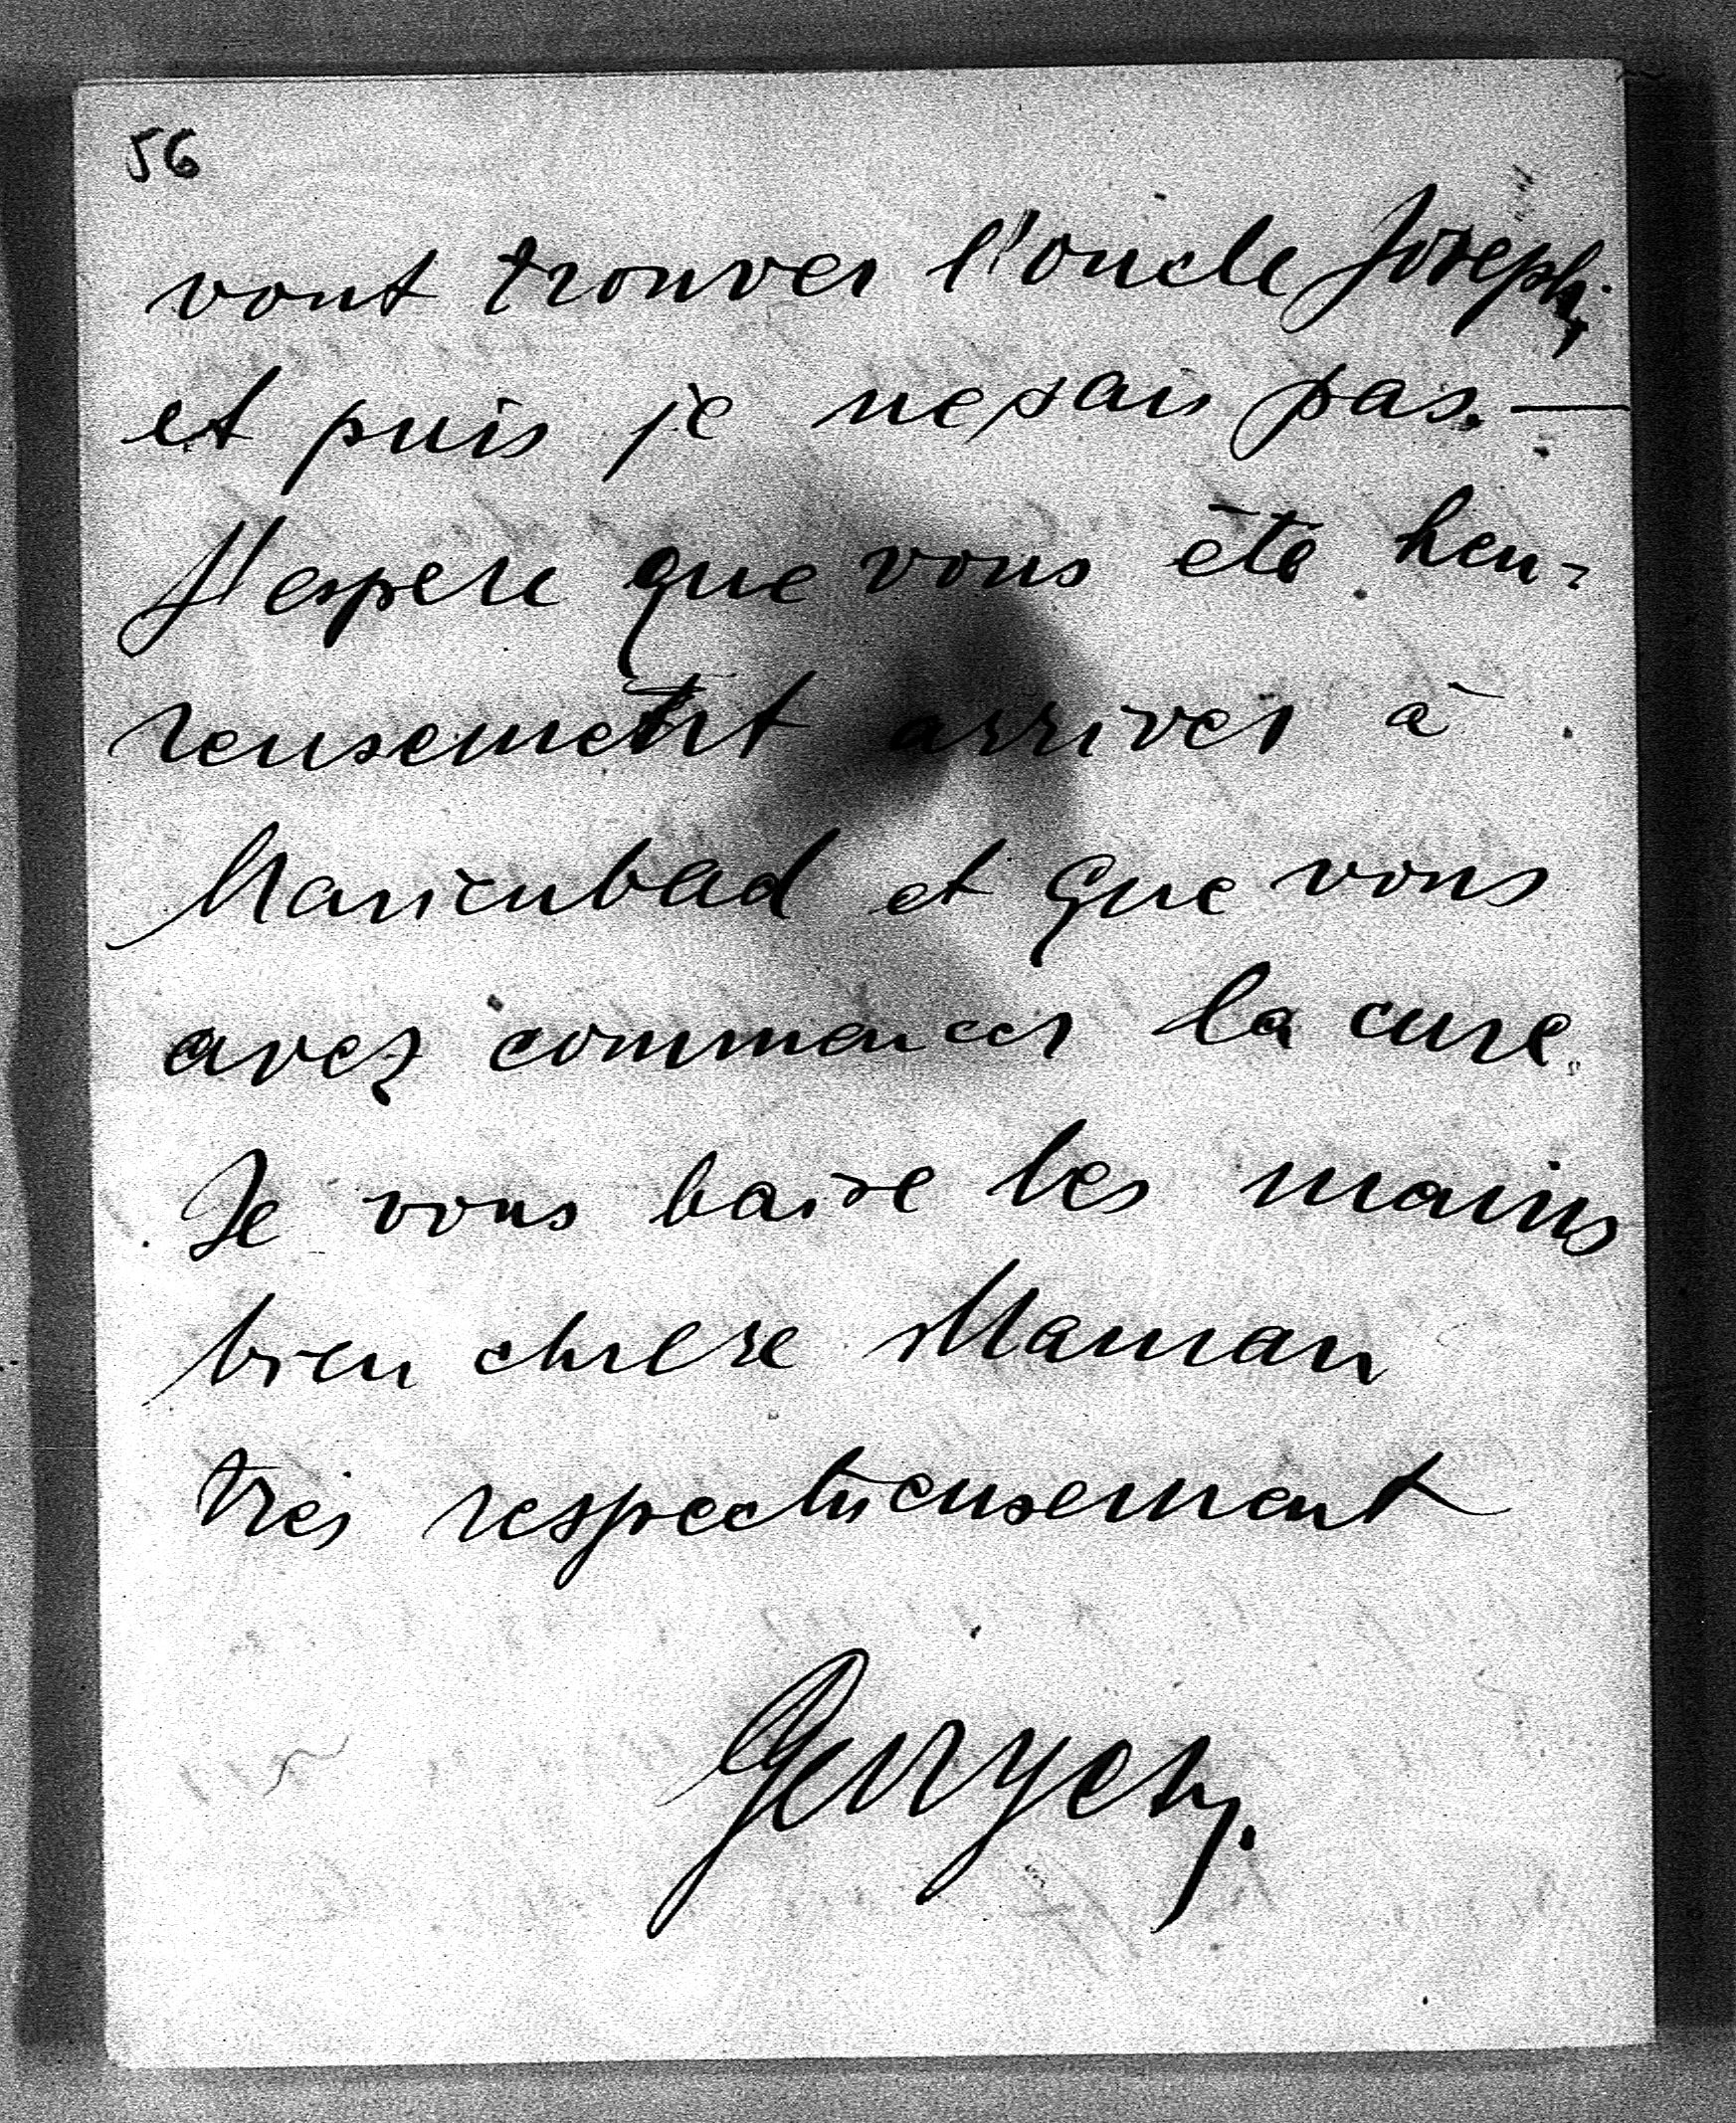 56
vont trouver l'oncle Joseph,
et puis je ne sais pas. —
J'espere que vous éte heu-
reusement arriver à
Marienbad et que vous
avez commencer la cure.
Je vous baise les mains
bien chere Maman
très respectueusement